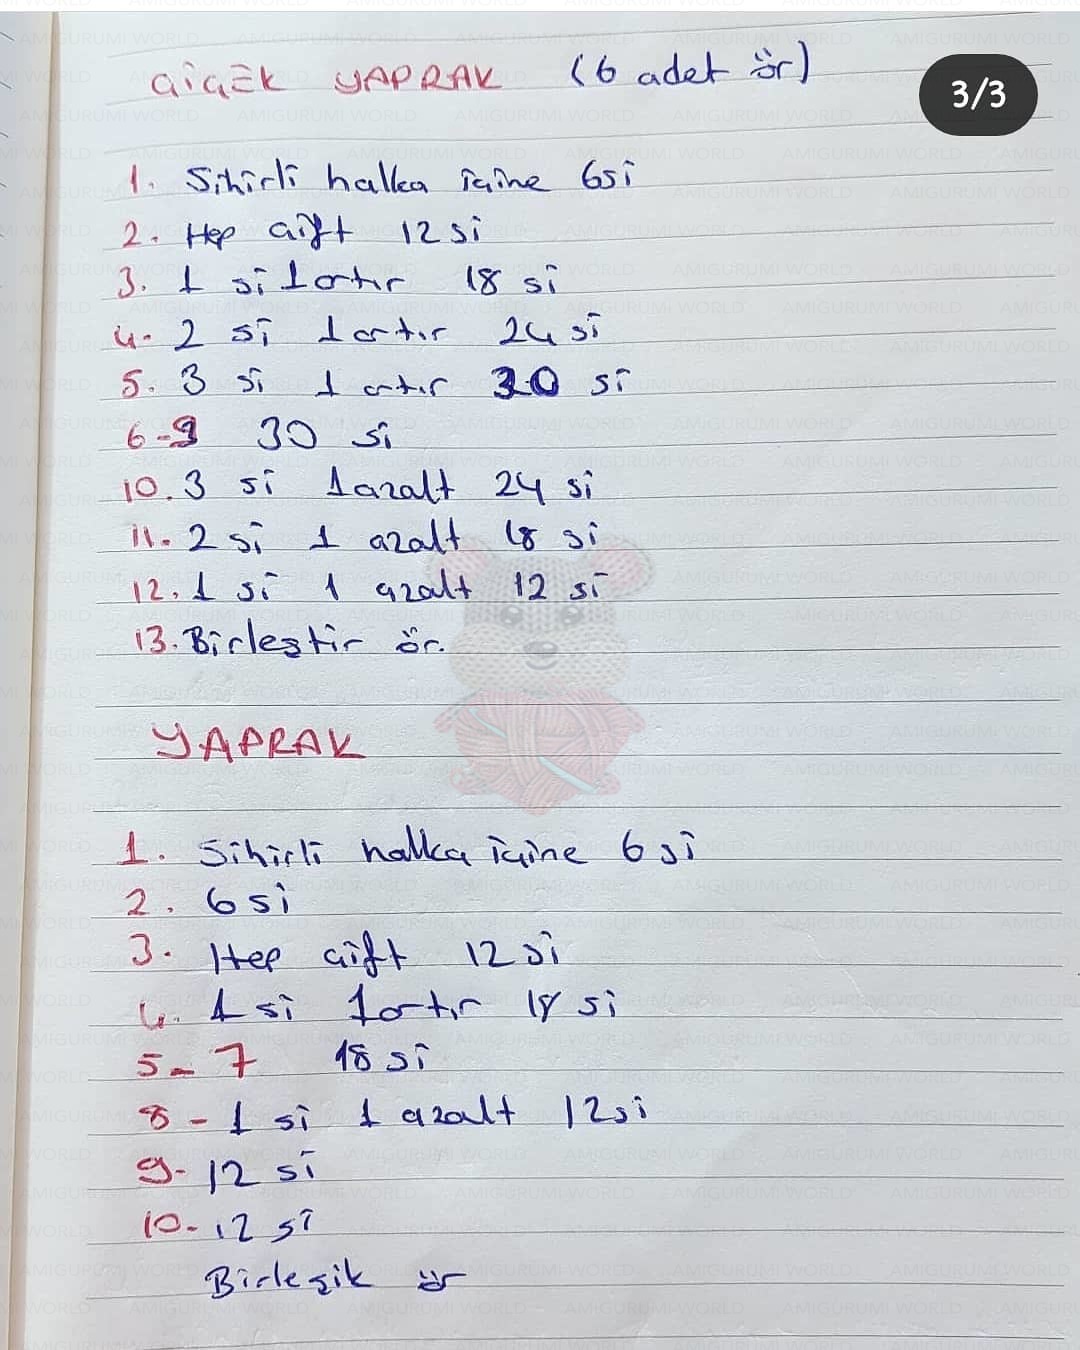 ÇİÇEK YAPRAK (6 adet ör)
3/3
1. Sihirli halka içine 6si
2. Hep çift 12 si
3. 1 si 1 artır 18 si
4- 2 si 1 artır 24 si
5. 3 si 1 artır 30 si
6-9 30 si
10. 3 si 1 azalt 24 si
11. 2 si 1 azalt 18 si
12. 1 si 1 azalt 12 si
13. Birleştir ör.
YAPRAK
1. Sihirli halka içine 6 si
2. 6 si
3. Hep çift 12 si
4. 1 si 1 artır 18 si
5-7 18 si
8- 1 si 1 azalt 12 si
9- 12 si
10- 12 si
Birleşik ör
AMIGURUMI WORLD